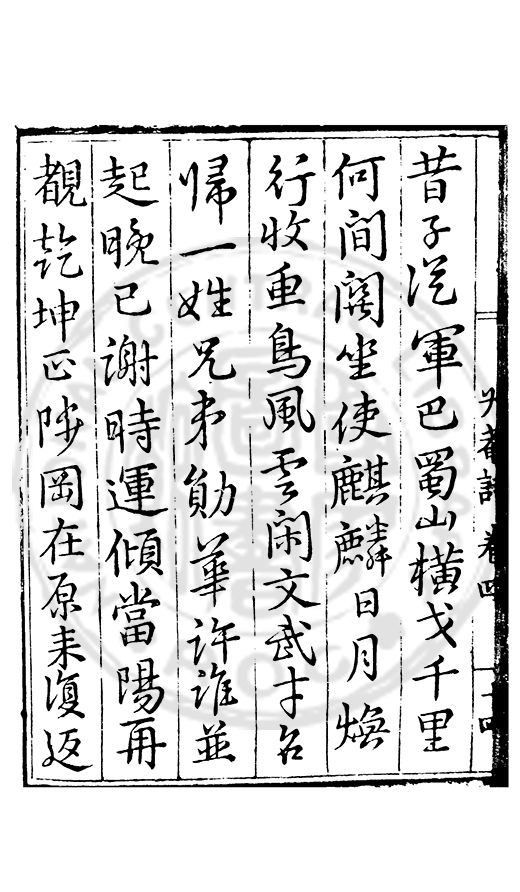 詩 卷四 十四
昔子從軍巴蜀山橫戈千里
何間闊坐使麒麟日月煥
行收重鳥風雲閑文武才名
帰一姓兄弟勛華許誰並
起晚已謝時運傾當陽再
覩乾坤正陟岡在原来復返